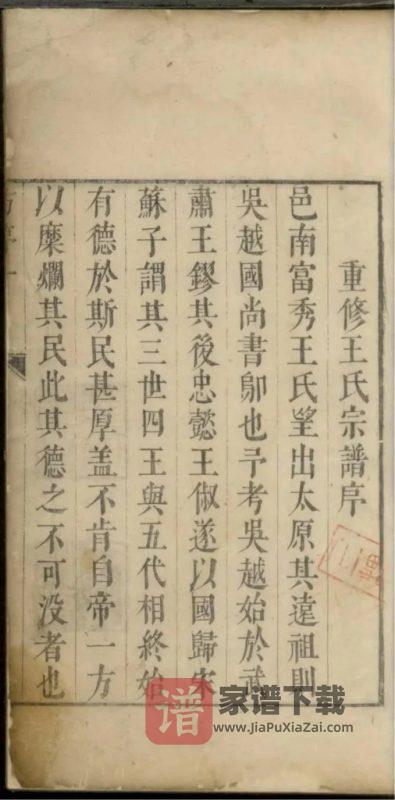 重修王氏宗譜序
邑南富秀王氏望出太原其遠祖則
吳越國尚書郎也予考吳越始於武
肅王鏐其後忠懿王俶遂以國歸宋
蘇子謂其三世四王與五代相終始
有德於斯民甚厚盖不肯自帝一方
以糜爛其民此其德之不可没者也
谱 家谱下载
www.JiaPuXiaZai.com